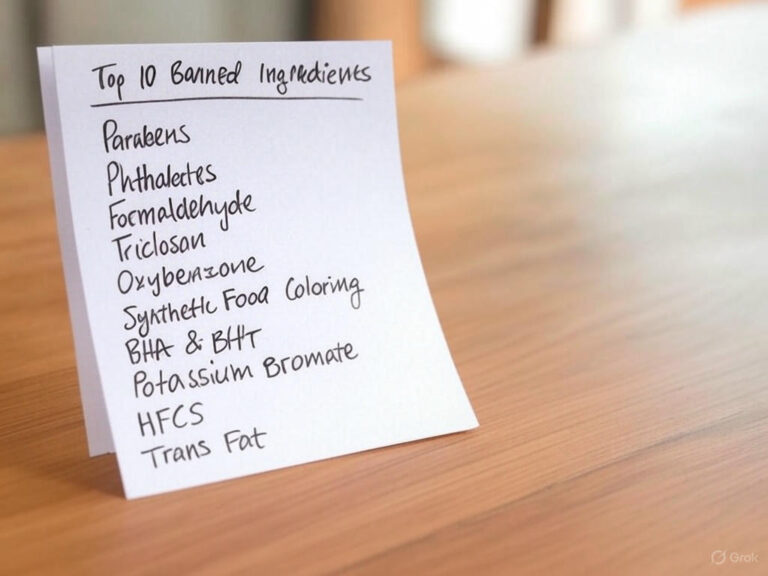 Top 10 Banned Ingredients
Parabens
Phthalectes
Formaldehyde
Triclosan
Oxybenzone
Synthetic Food Coloring
BHA & BHT
Potassium Bromate
HFCS
Trans Fat
Grok